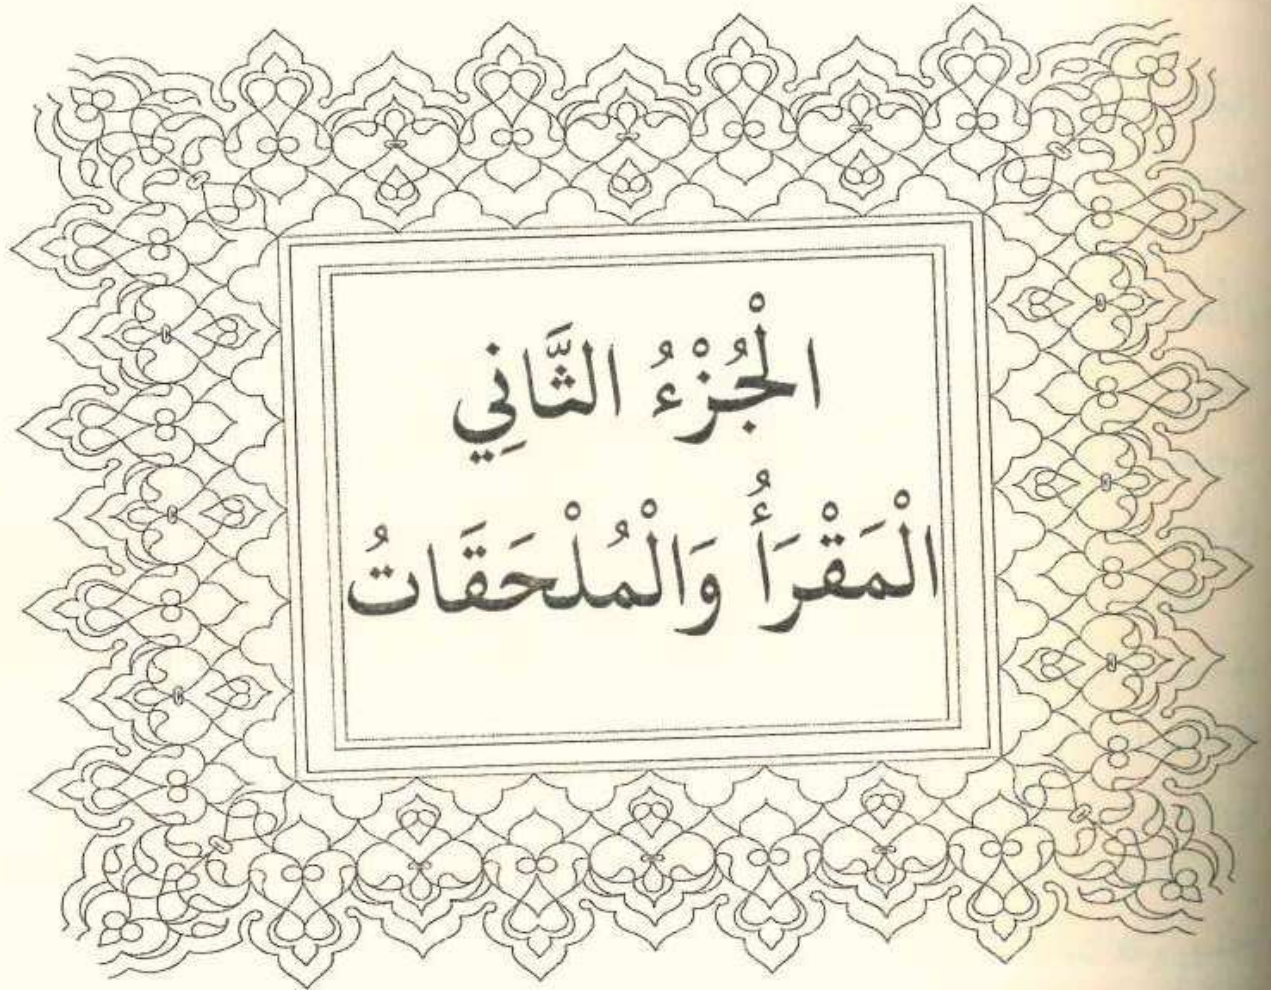 الْجُزْءُ الثَّانِي
الْمَقْرَأُ وَالْمُلْحَقَاتُ